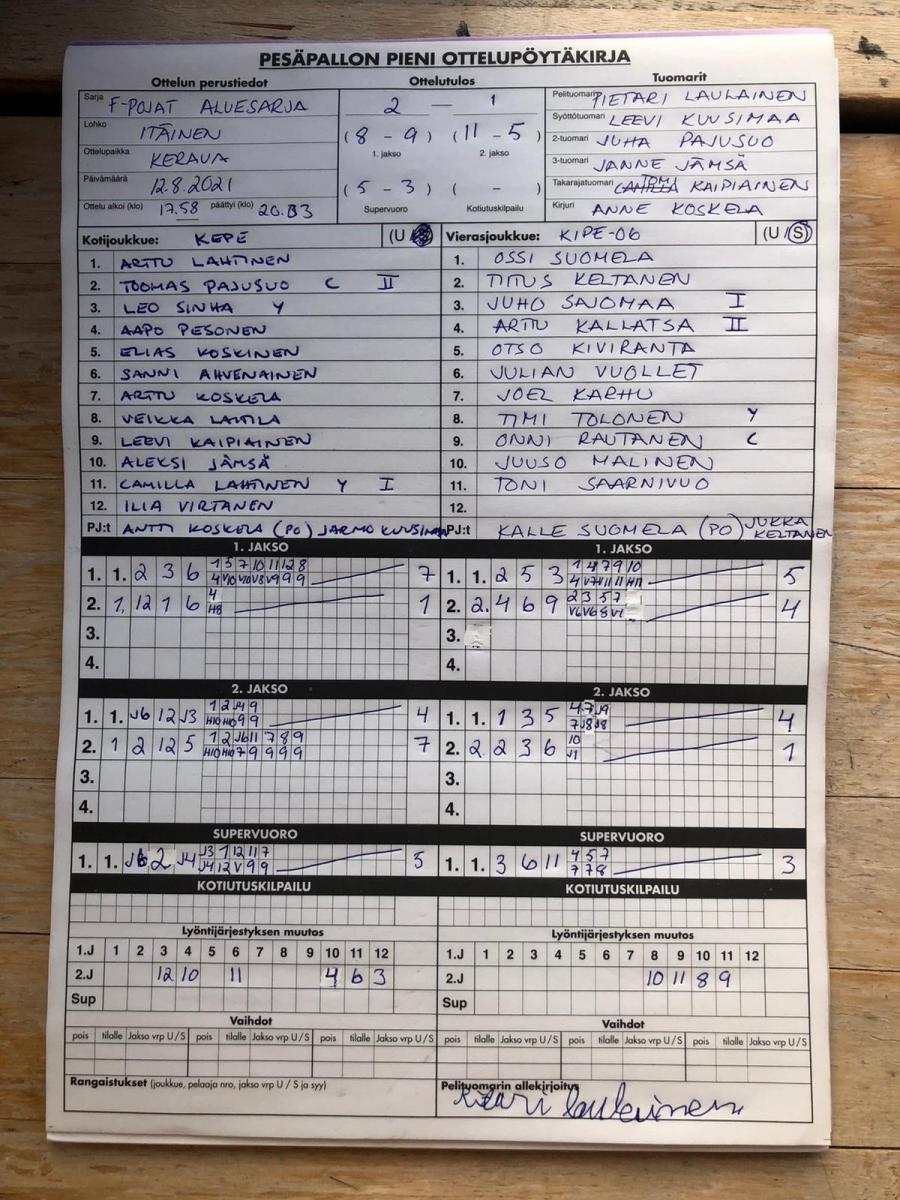 PESÄPALLON PIENI OTTELUPÖYTÄKIRJA
Ottelun perustiedot Ottelutulos Tuomarit
Sarja F-POJAT ALUESARJA
Lohko ITÄINEN
Ottelupaikka KERAVA
Päivämäärä 12.8.2021
Ottelu alkoi (klo) 17.58 päättyi (klo) 20.03
2 — 1
(8 - 9) (11 - 5)
1. jakso 2. jakso
(5 - 3) ( - )
Supervuoro Kotiutuskilpailu
Pelituomari PIETARI LAULAINEN
Syöttötuomari LEEVI KUUSIMAA
2-tuomari JUHA PAJUSUO
3-tuomari JANNE JÄMSÄ
Takarajatuomari TOMI KAIPIAINEN
Kirjuri ANNE KOSKELA
Kotijoukkue: KEPE (U /
1. ARTTU LAHTINEN
2. TOOMAS PAJUSUO C II
3. LEO SINHA Y
4. AAPO PESONEN
5. ELIAS KOSKINEN
6. SANNI AHVENAINEN
7. ARTTU KOSKELA
8. VEIKKA LAITILA
9. LEEVI KAIPIAINEN
10. ALEKSI JÄMSÄ
11. CAMILLA LAHTINEN Y I
12. ILIA VIRTANEN
PJ:t ANTTI KOSKELA (PO) JARMO KUUSIMAA
Vierasjoukkue: KIPE-06 (U / S)
1. OSSI SUOMELA
2. TITUS KELTANEN
3. JUHO SAJOMAA I
4. ARTTU KALLATSA II
5. OTSO KIVIRANTA
6. JULIAN VUOLLET
7. JOEL KARHU
8. TIMI TOLONEN Y
9. ONNI RAUTANEN C
10. JUUSO MALINEN
11. TONI SAARNIVUO
12.
PJ:t KALLE SUOMELA (PO) JUKKA KELTANEN
1. JAKSO
1. 1. 2 3 6 1 5 7 10 11 12 8 7
4 V10 V10 V8 V9 9 9
2. 1, 12 1 6 4 1
H8
3.
4.
1. JAKSO
1. 1. 2 5 3 1 4 7 9 10 5
4 V7 V11 11 H11
2. 2. 4 6 9 2 3 5 7 4
V6 V6 8 V1
3.
4.
2. JAKSO
1. 1. J6 12 J3 1 2 J4 9 4
H10 H10 9 9
2. 1 2 12 5 1 2 J6 11 7 8 9 7
H10 H10 7 9 9 9 9
3.
4.
2. JAKSO
1. 1. 1 3 5 4 7 J9 4
7 J8 J8
2. 2. 2 3 6 10 1
J1
3.
4.
SUPERVUORO
1. 1. J6 2 J4 J3 1 12 11 7 5
J4 12 V 9 9
SUPERVUORO
1. 1. 3 6 11 4 5 7 3
7 7 8
KOTIUTUSKILPAILU KOTIUTUSKILPAILU
Lyöntijärjestyksen muutos
1.J 1 2 3 4 5 6 7 8 9 10 11 12
2.J 12 10 11 4 6 3
Sup
Lyöntijärjestyksen muutos
1.J 1 2 3 4 5 6 7 8 9 10 11 12
2.J 10 11 8 9
Sup
Vaihdot Vaihdot
pois tilalle Jakso vrp U / S pois tilalle Jakso vrp U / S pois tilalle Jakso vrp U / S
pois tilalle Jakso vrp U / S pois tilalle Jakso vrp U / S pois tilalle Jakso vrp U / S
Rangaistukset (joukkue, pelaaja nro, jakso vrp U / S ja syy)
Pelituomarin allekirjoitus